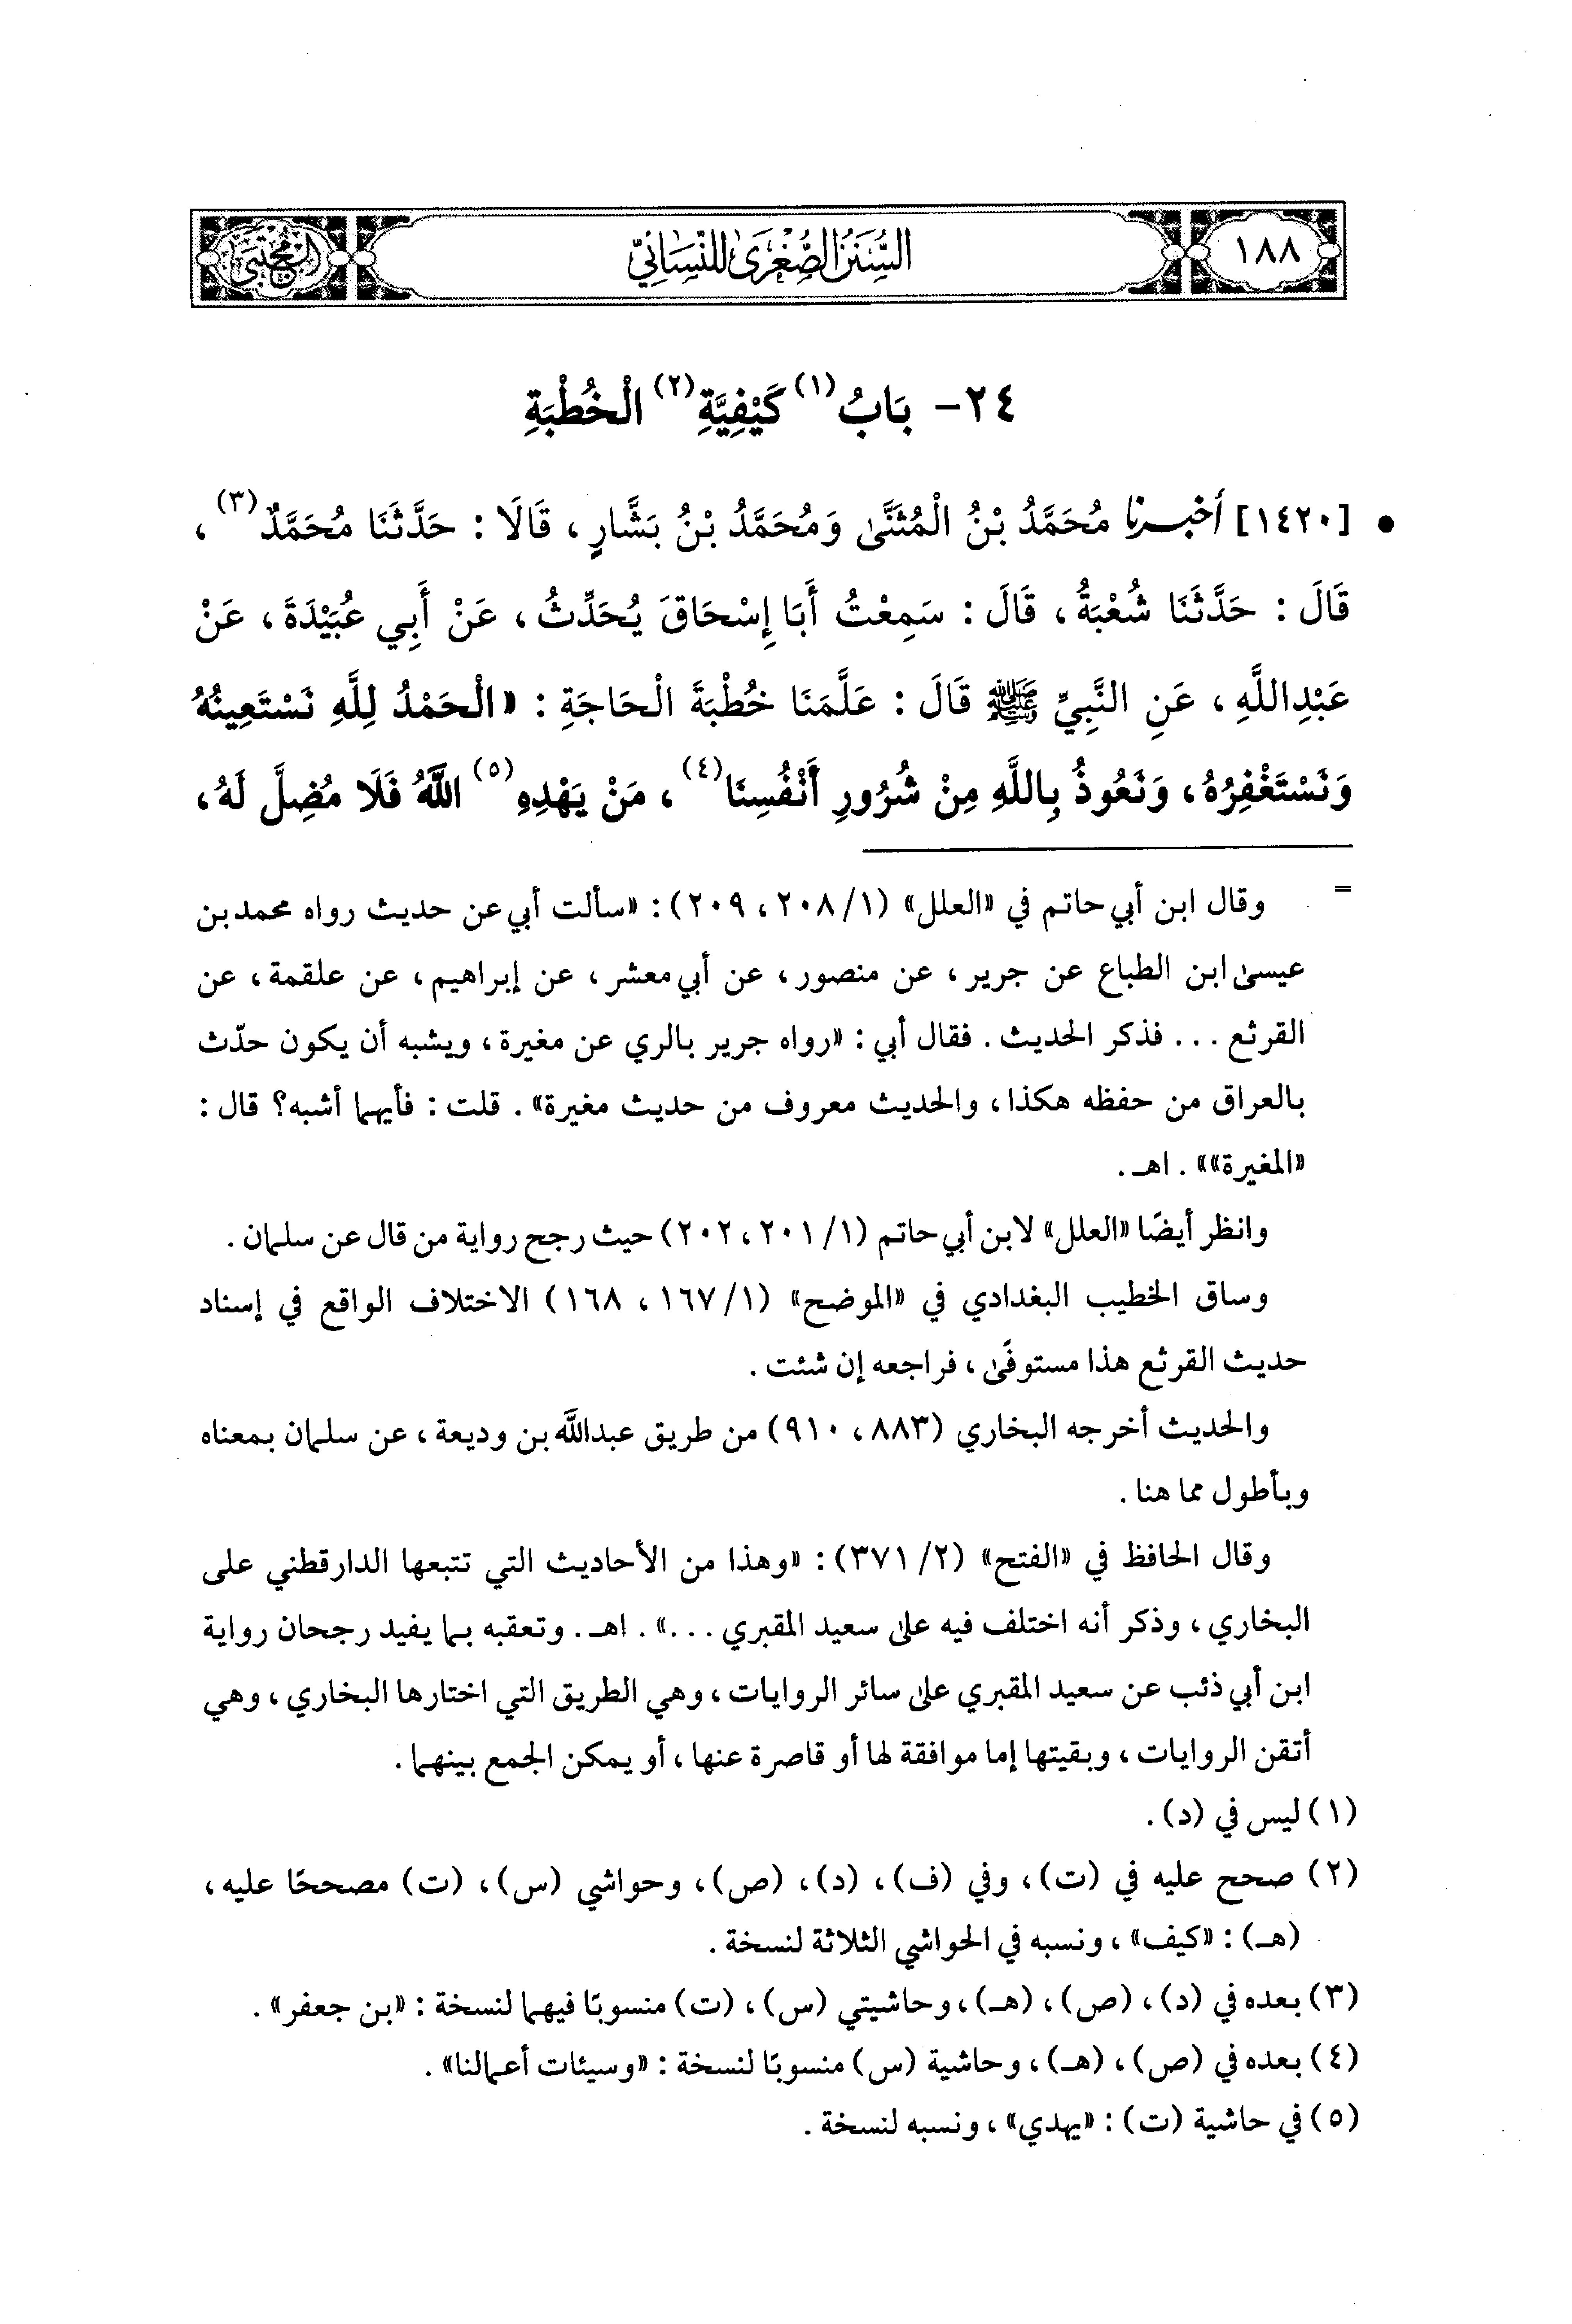 ١٨٨
السُّنَنُ الصُّغْرَىٰ لِلنَّسَائِيِّ
المجتبى
٢٤- بَابُ(١) كَيْفِيَّةِ(٢) الْخُطْبَةِ
• [١٤٢٠] أخبرنا مُحَمَّدُ بْنُ الْمُثَنَّىٰ وَمُحَمَّدُ بْنُ بَشَّارٍ، قَالَا: حَدَّثَنَا مُحَمَّدٌ(٣)،
قَالَ: حَدَّثَنَا شُعْبَةُ، قَالَ: سَمِعْتُ أَبَا إِسْحَاقَ يُحَدِّثُ، عَنْ أَبِي عُبَيْدَةَ، عَنْ
عَبْدِاللَّهِ، عَنِ النَّبِيِّ ﷺ قَالَ: عَلَّمَنَا خُطْبَةَ الْحَاجَةِ: «الْحَمْدُ لِلَّهِ نَسْتَعِينُهُ
وَنَسْتَغْفِرُهُ، وَنَعُوذُ بِاللَّهِ مِنْ شُرُورِ أَنْفُسِنَا(٤)، مَنْ يَهْدِهِ(٥) اللَّهُ فَلَا مُضِلَّ لَهُ،
= وقال ابن أبي حاتم في «العلل» (١/ ٢٠٨، ٢٠٩): «سألت أبي عن حديث رواه محمد بن
عيسىٰ ابن الطباع عن جرير، عن منصور، عن أبي معشر، عن إبراهيم، عن علقمة، عن
القرثع ... فذكر الحديث. فقال أبي: «رواه جرير بالري عن مغيرة، ويشبه أن يكون حدّث
بالعراق من حفظه هكذا، والحديث معروف من حديث مغيرة». قلت: فأيهما أشبه؟ قال:
«المغيرة»». اهـ.
وانظر أيضًا «العلل» لابن أبي حاتم (١/ ٢٠١، ٢٠٢) حيث رجح رواية من قال عن سلمان.
وساق الخطيب البغدادي في «الموضح» (١/ ١٦٧، ١٦٨) الاختلاف الواقع في إسناد
حديث القرثع هذا مستوفًى، فراجعه إن شئت.
والحديث أخرجه البخاري (٨٨٣، ٩١٠) من طريق عبداللَّه بن وديعة، عن سلمان بمعناه
وبأطول مما هنا.
وقال الحافظ في «الفتح» (٢/ ٣٧١): «وهذا من الأحاديث التي تتبعها الدارقطني على
البخاري، وذكر أنه اختلف فيه على سعيد المقبري ...». اهـ. وتعقبه بما يفيد رجحان رواية
ابن أبي ذئب عن سعيد المقبري على سائر الروايات، وهي الطريق التي اختارها البخاري، وهي
أتقن الروايات، وبقيتها إما موافقة لها أو قاصرة عنها، أو يمكن الجمع بينهما.
(١) ليس في (د).
(٢) صحح عليه في (ت)، وفي (ف)، (د)، (ص)، وحواشي (س)، (ت) مصححًا عليه،
(هـ): «كيف»، ونسبه في الحواشي الثلاثة لنسخة.
(٣) بعده في (د)، (ص)، (هـ)، وحاشيتي (س)، (ت) منسوبًا فيهما لنسخة: «بن جعفر».
(٤) بعده في (ص)، (هـ)، وحاشية (س) منسوبًا لنسخة: «وسيئات أعمالنا».
(٥) في حاشية (ت): «يهدي»، ونسبه لنسخة.